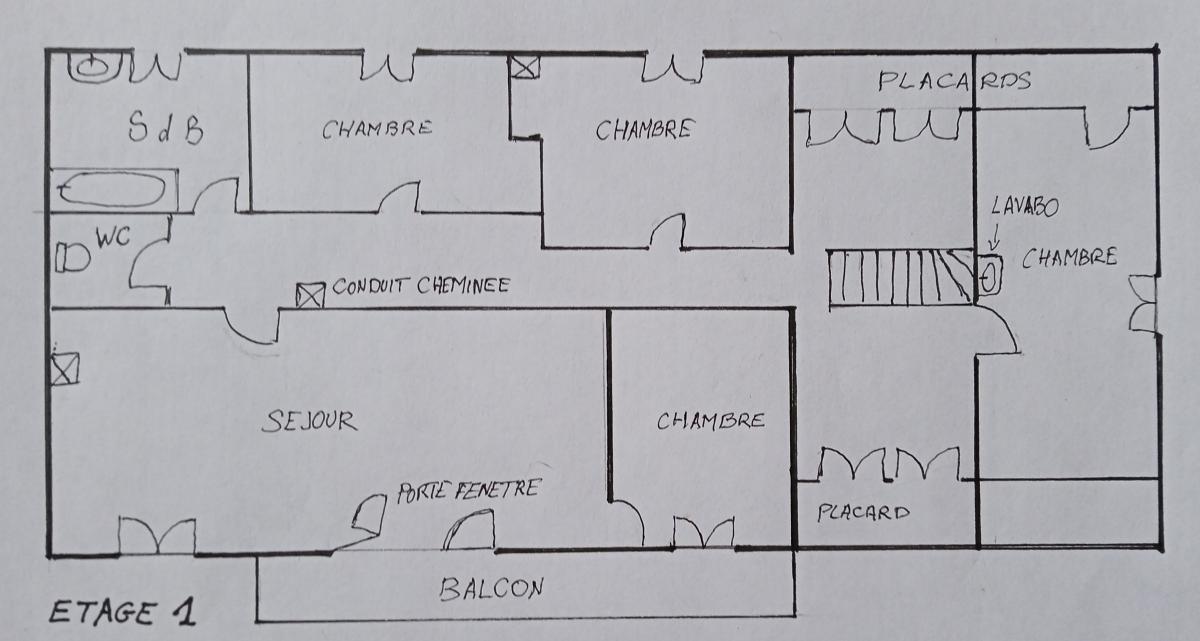 PLACARDS
S d B
CHAMBRE
CHAMBRE
LAVABO
WC
CHAMBRE
CONDUIT CHEMINEE
SEJOUR
CHAMBRE
PORTE FENETRE
PLACARD
BALCON
ETAGE 1